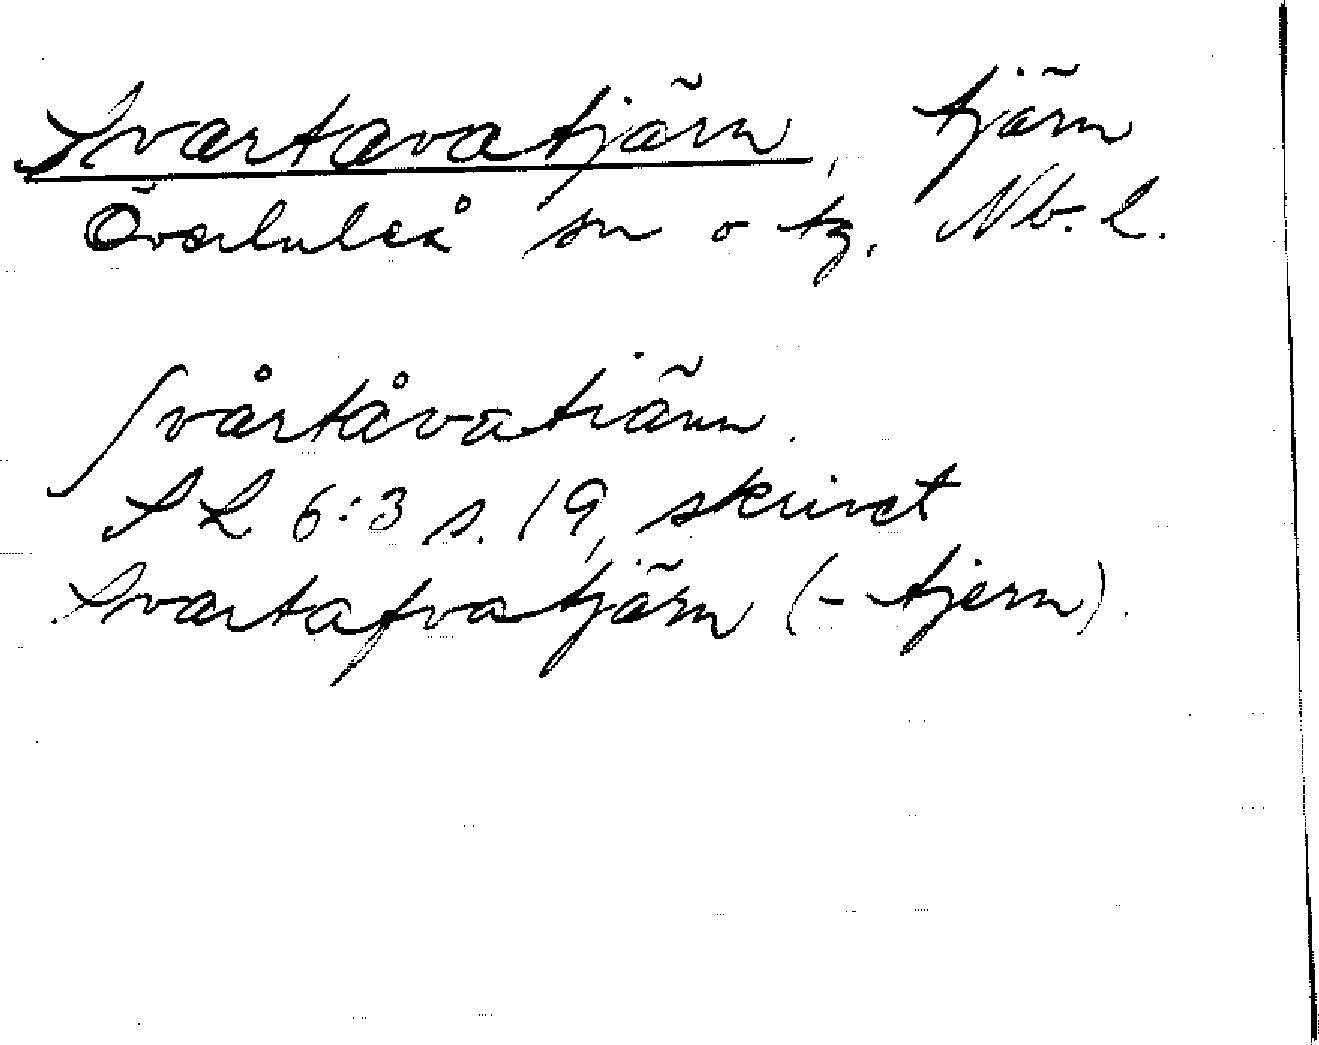 Svartavatjärn, tjärn
Överluleå sn o tg. Nb. l.
Svårtåvatiärn.
SL 6:3 s. 19, skrivet
Svartafvatjärn (- tjern).